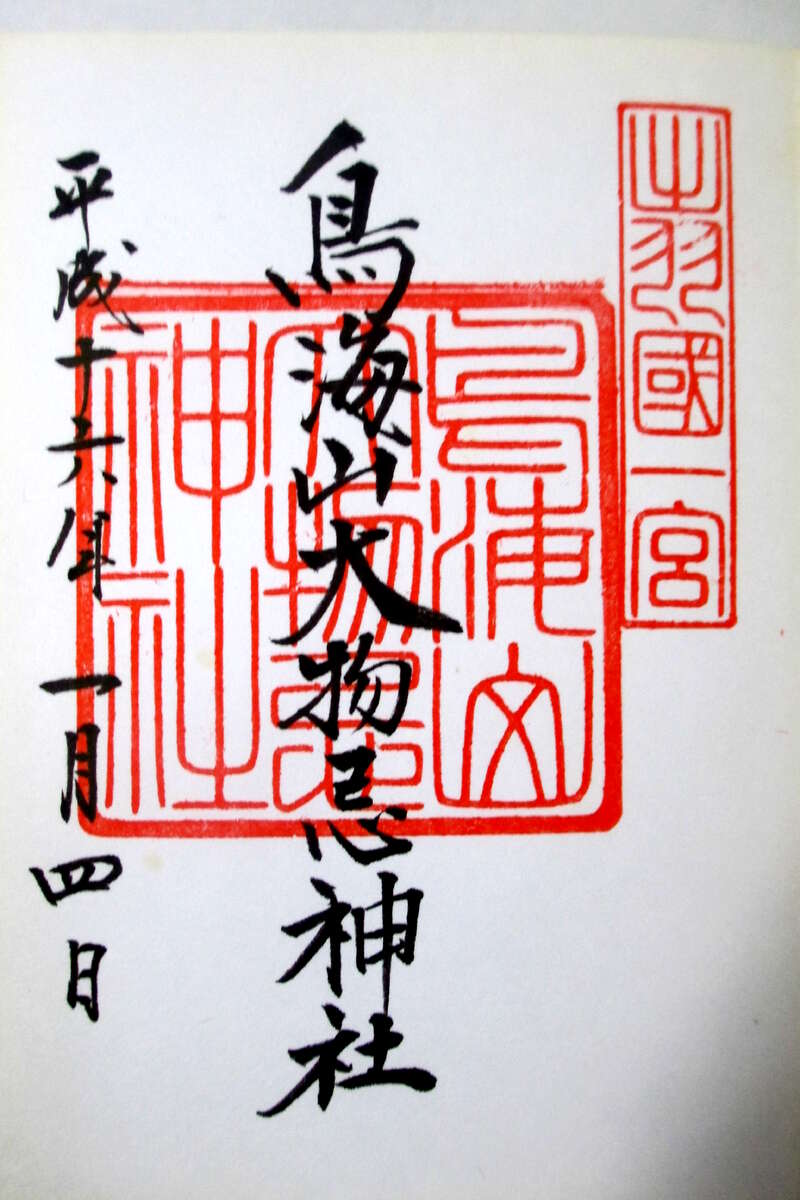 出羽國一宮
鳥海山
大物忌
神社
鳥海山大物忌神社
平成十六年一月四日